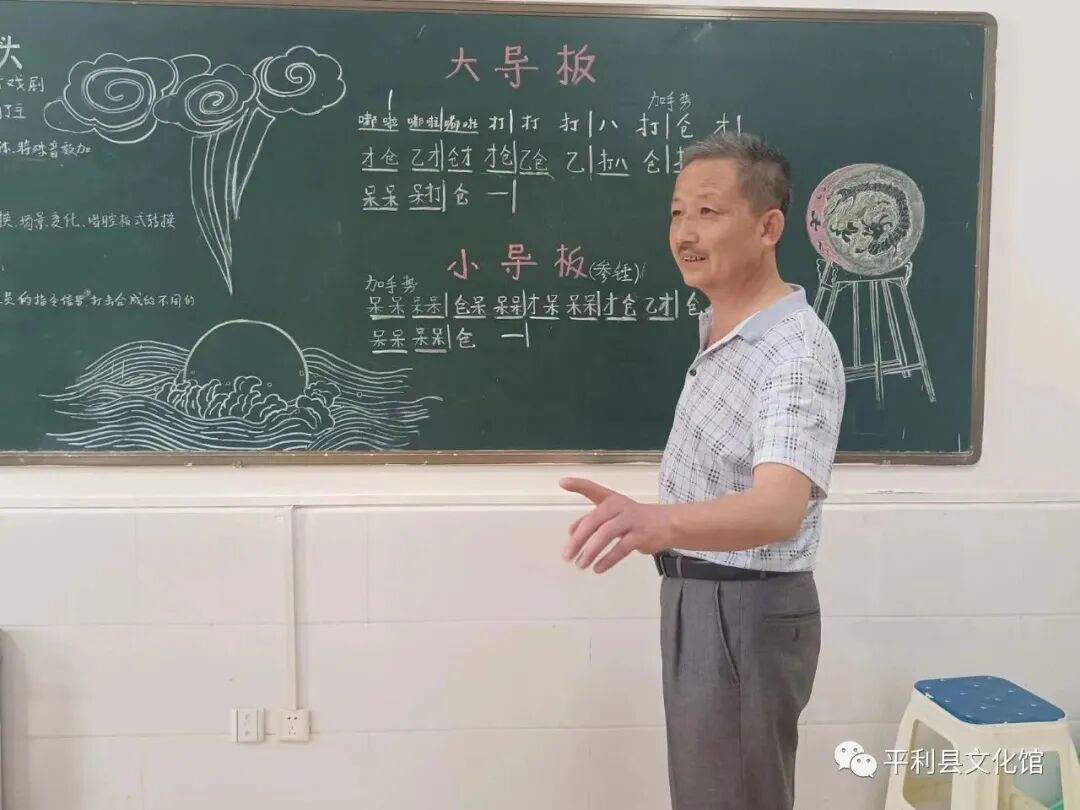 头
戏剧
特殊音效加
换、场景变化、唱腔板式转换
员的指令信号 打击合成的不同的
大导板
加手势
嘟啦 嘟啦|嘟啦 打|打 打|八 打|仓 才|
才仓 乙才|仓才 才仓|乙仓 乙|打八 仓
呆呆 呆打|仓 一|
小导板(参锤)
加手势
呆呆 呆呆|仓呆 呆呆|才呆 呆呆|才仓 乙才|仓
呆呆 呆呆|仓 一|
平利县文化馆